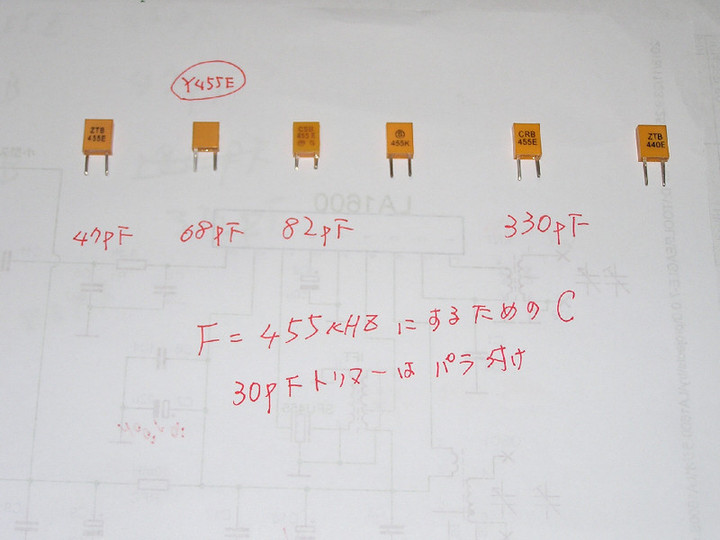 Y455E
ZTB
455E
CSB
455E
455K
CRB
455E
ZTB
440E
47pF
68pF
82pF
330pF
LA1600
F=455KHZにするためのC
30pFトリマーはパラ付け